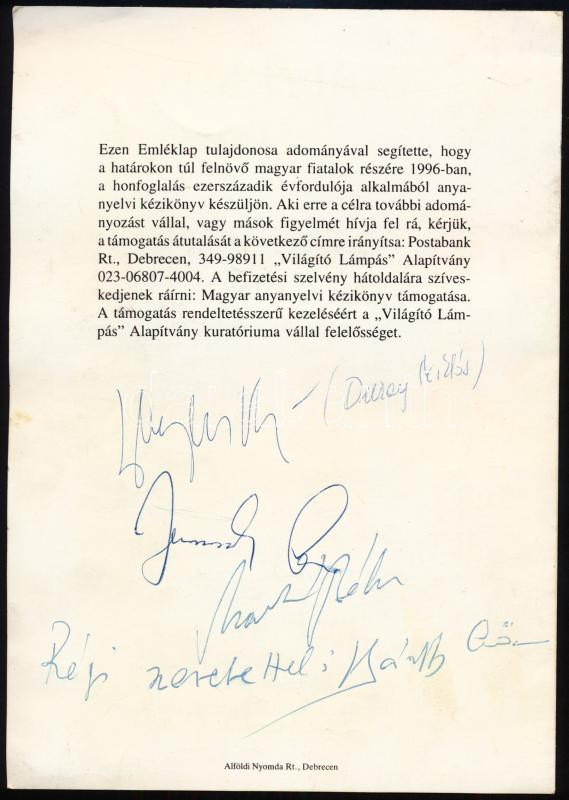 Ezen Emléklap tulajdonosa adományával segítette, hogy
a határokon túl felnövő magyar fiatalok részére 1996-ban,
a honfoglalás ezerszázadik évfordulója alkalmából anya-
nyelvi kézikönyv készüljön. Aki erre a célra további adomá-
nyozást vállal, vagy mások figyelmét hívja fel rá, kérjük,
a támogatás átutalását a következő címre irányítsa: Postabank
Rt., Debrecen, 349-98911 „Világító Lámpás” Alapítvány
023-06807-4004. A befizetési szelvény hátoldalára szíves-
kedjenek ráírni: Magyar anyanyelvi kézikönyv támogatása.
A támogatás rendeltetésszerű kezeléséért a „Világító Lám-
pás” Alapítvány kuratóriuma vállal felelősséget.
(Duray Miklós)
Régi szeretettel:
Alföldi Nyomda Rt., Debrecen